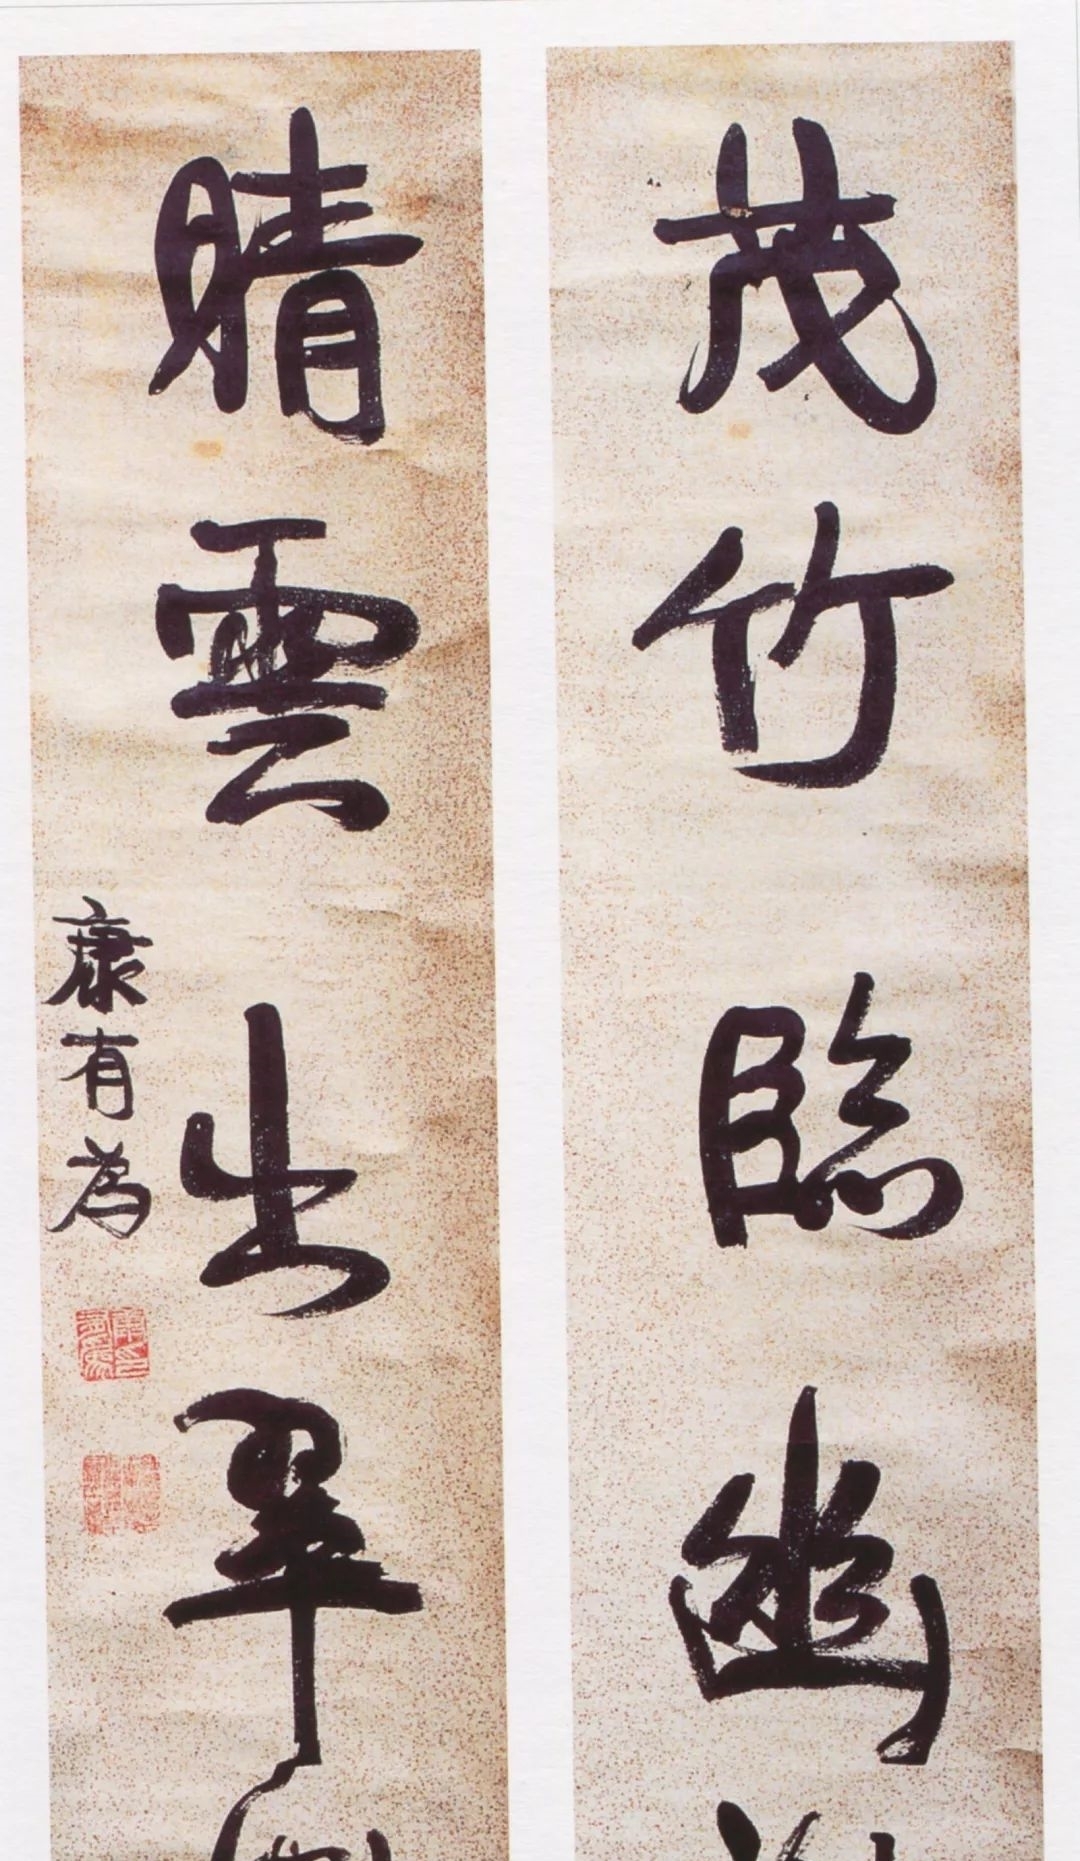 茂竹臨幽
晴雲出翠
康有為